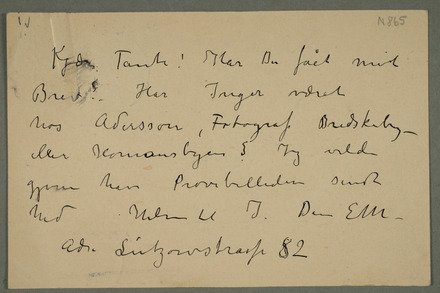 IV
N 865
Kjære Tante! Har Du fået mit
Brev?. Har Inger været
hos Adersson, Fotograf
eller Homansbyen? Jeg vilde
gjerne have Provebilleden sendt
hid J. Din EM–
Adr. Lützowstrasse 82